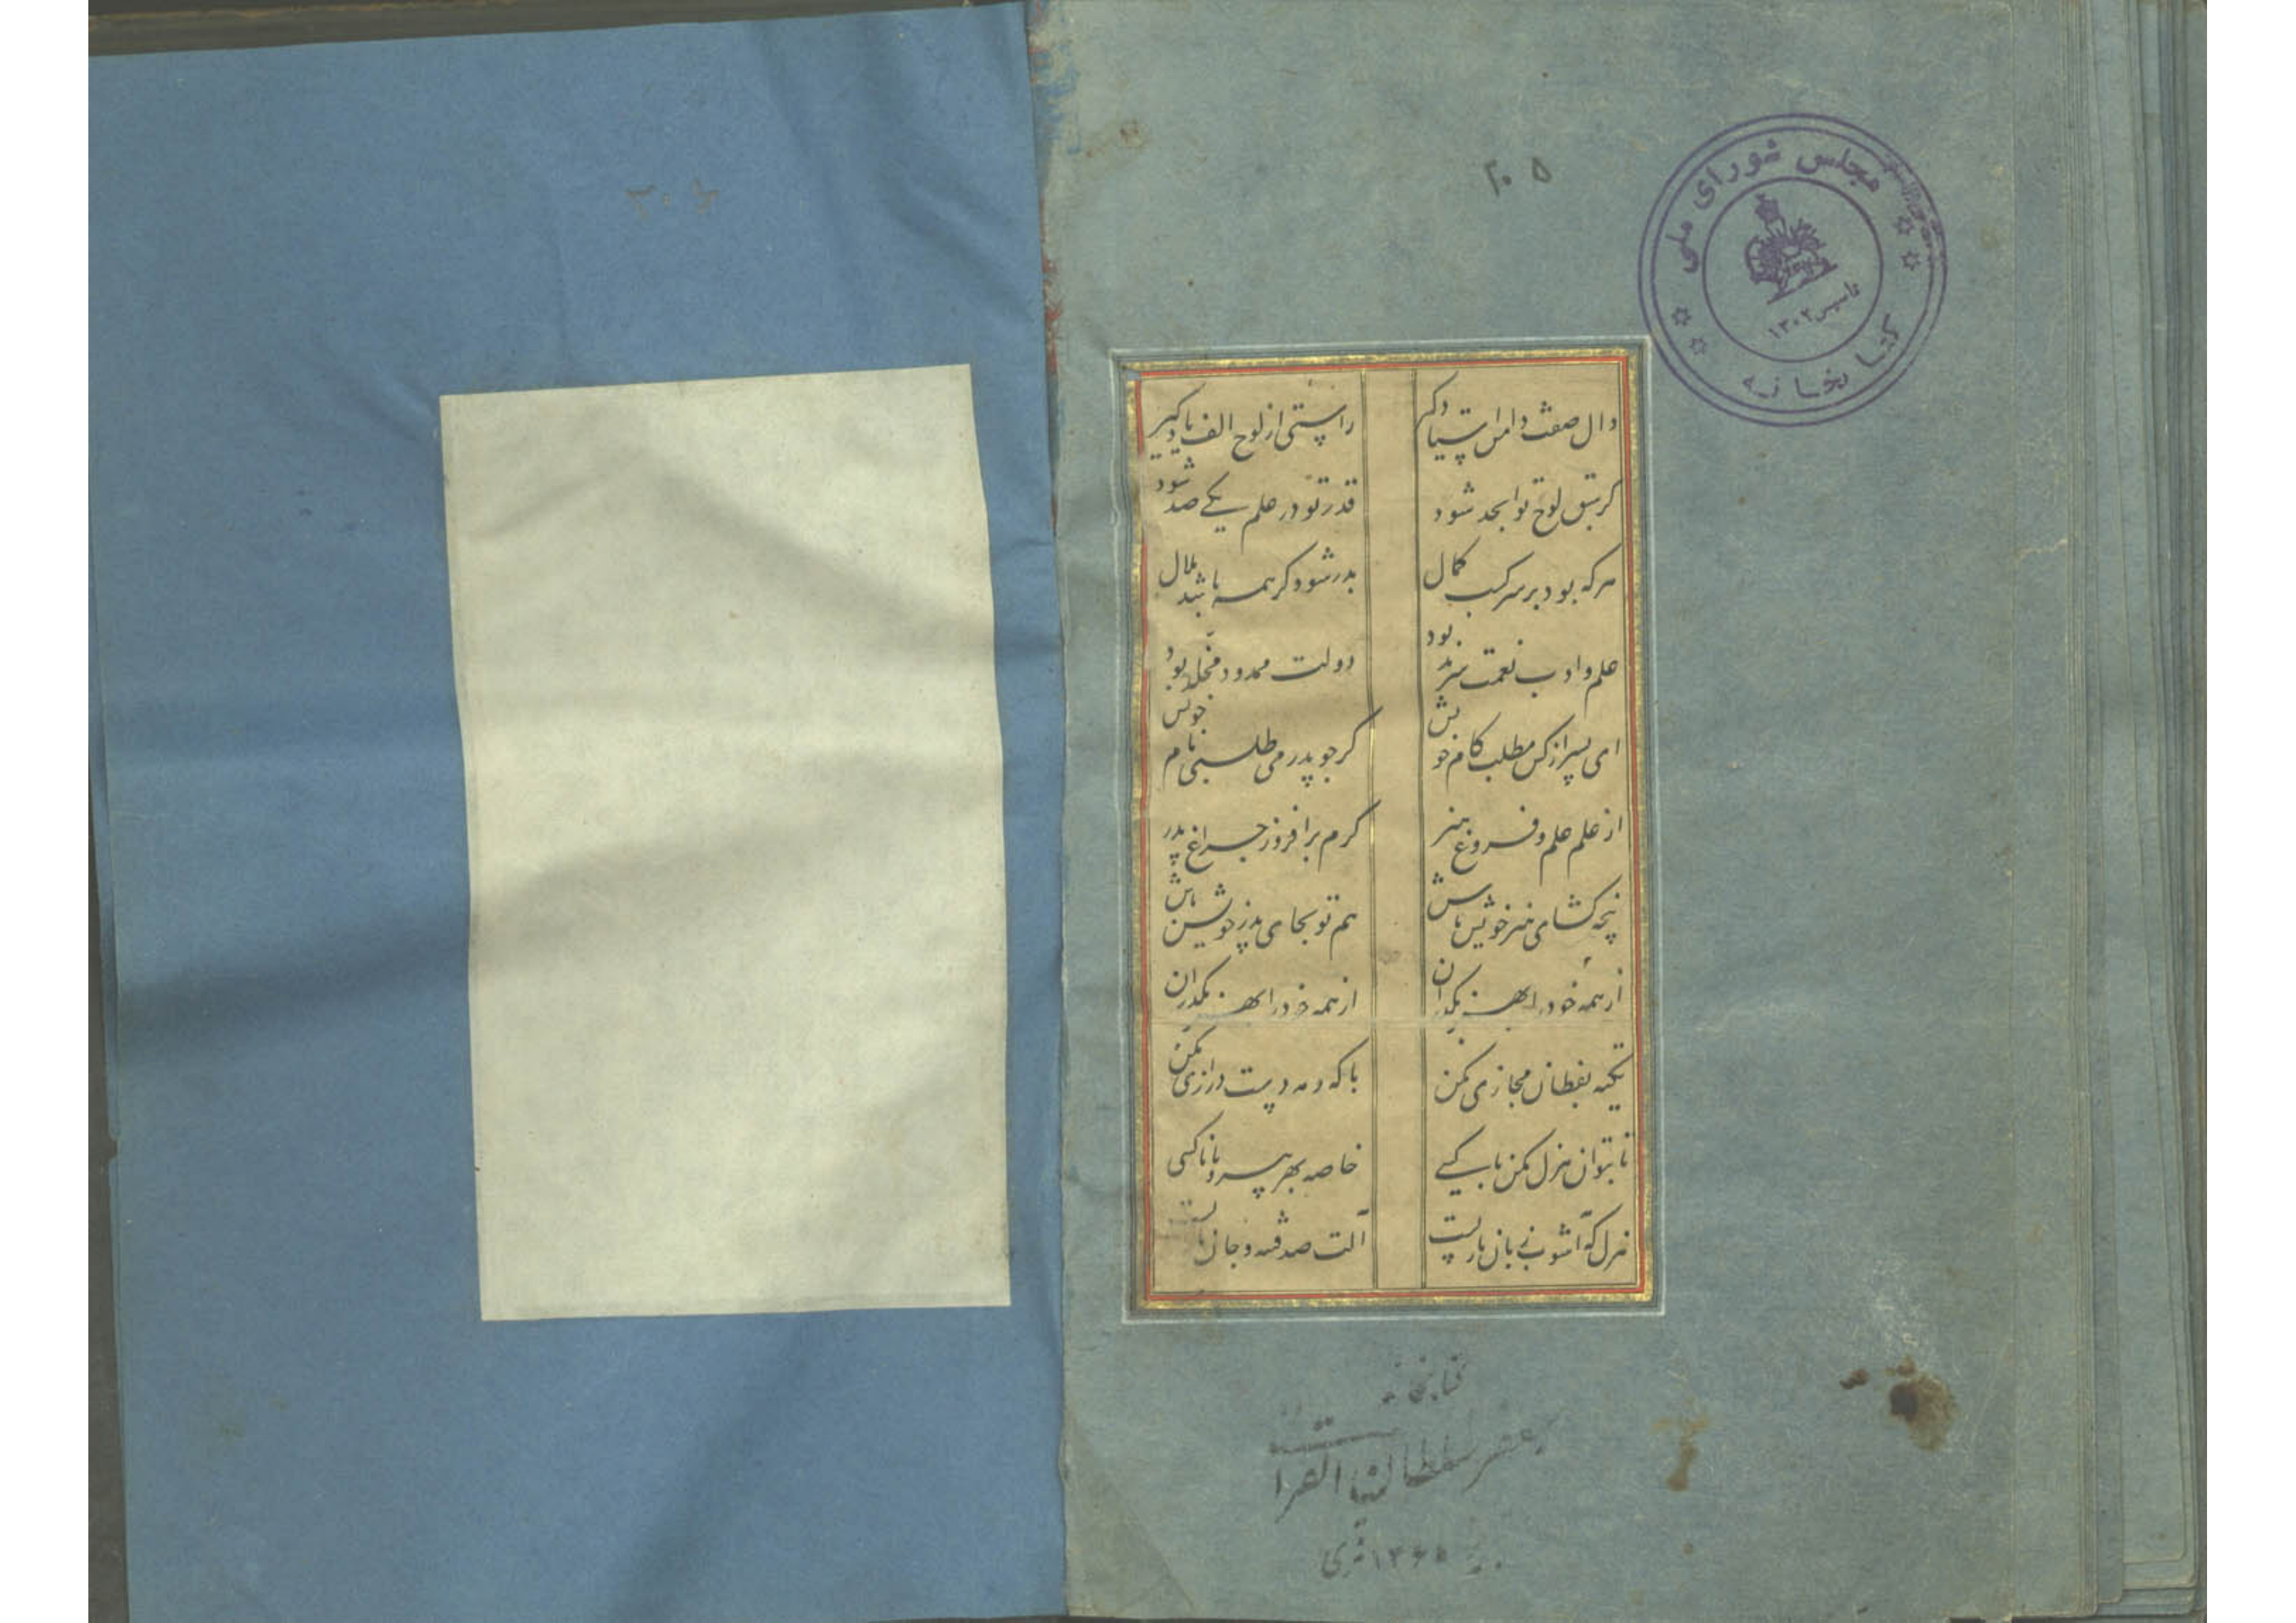 ۲۰۵
مجلس شورای ملی
تاسیس ۱۳۰۲
کتابخانه
دال صفت دامن استاد گیر
راستی از لوح الف یاد گیر
گر سبق لوح تو ابجد شود
قدر تو در علم یکی صد شود
هرکه بود بر سر کسب کمال
بدر شود گر همه باشد هلال
علم و ادب نعمت سرمد بود
دولت ممدود مخلد بود
ای پسر از کس مطلب کام خویش
گر چو پدر می طلبی نام خویش
از علم علم و فروغ هنر
گرم برافروز چراغ پدر
پنجه گشای هنر خویش باش
هم تو بجای پدر خویش باش
از همه خود را بهنر بگذران
از همه خود را بهنر بگذران
تکیه بفطان مجازی مکن
با که و مه دست درازی مکن
تا بتوان هزل مکن با کسی
خاصه بهر بی سر و پا ناکسی
هزل که آشوب زبان
آلت صد فتنه و جان
کتابخانه